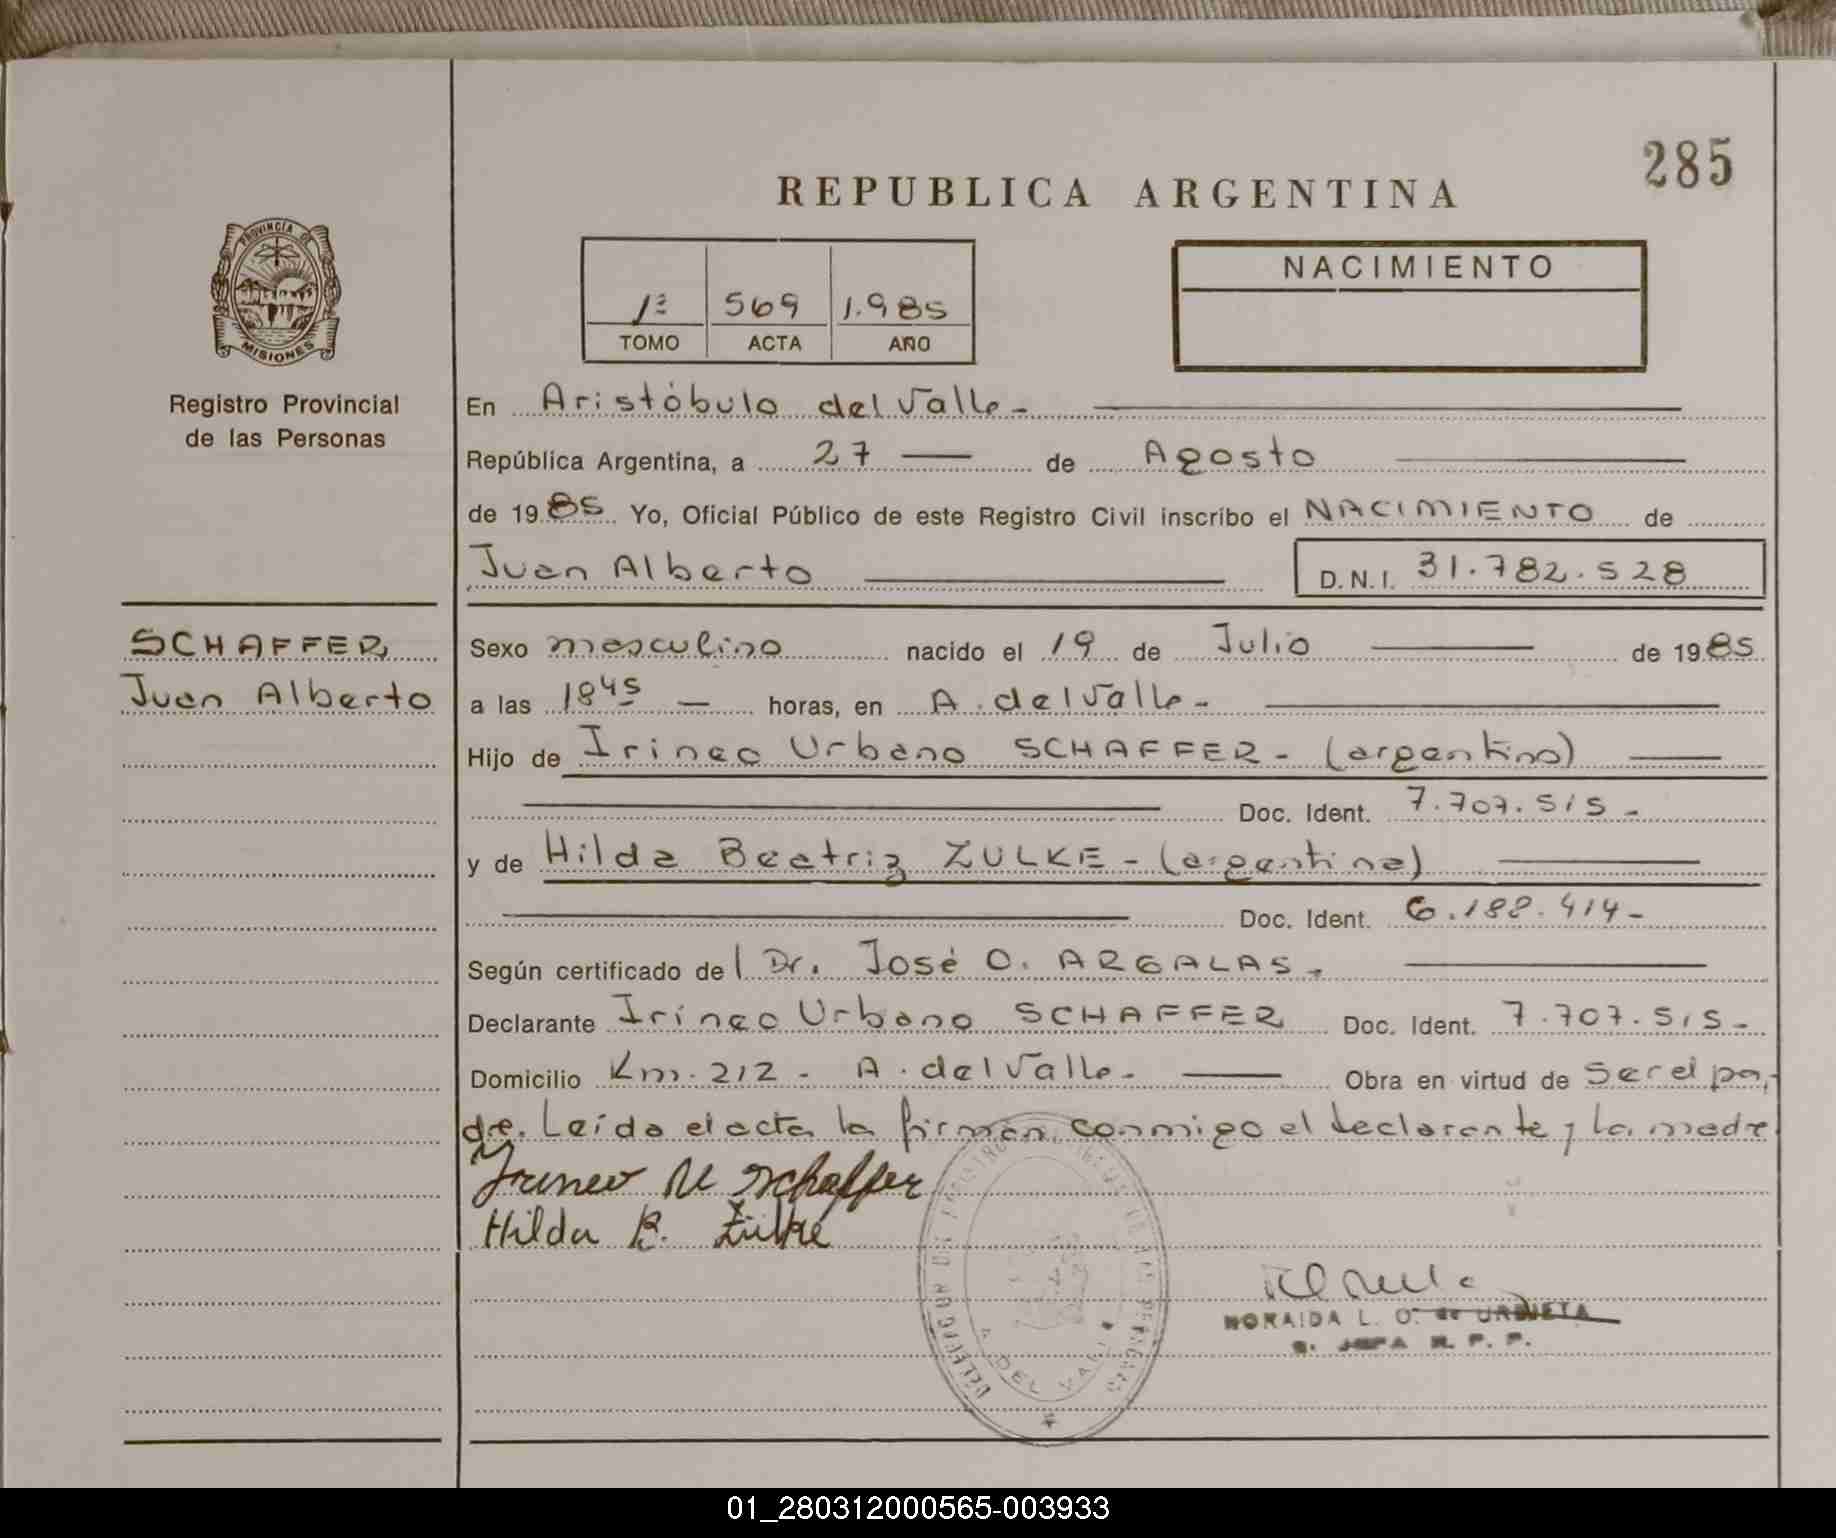 285
REPUBLICA ARGENTINA
PROVINCIA DE
MISIONES
1º 569 1.985
TOMO ACTA AÑO
NACIMIENTO
Registro Provincial
de las Personas
En Aristóbulo del Valle -
República Argentina, a 27 — de Agosto
de 1985 Yo, Oficial Público de este Registro Civil inscribo el NACIMIENTO de
Juan Alberto — D.N.I. 31.782.528
SCHAFFER,
Juan Alberto
Sexo masculino nacido el 19 de Julio — de 1985
a las 18 45 — horas, en A. del Valle -
Hijo de Irineo Urbano SCHAFFER - (argentino) —
Doc. Ident. 7.707.515 -
y de Hilda Beatriz ZULKE - (argentina) —
Doc. Ident. 6.188.414 -
Según certificado del Dr. José O. ARGALAS.
Declarante Irineo Urbano SCHAFFER Doc. Ident. 7.707.515 -
Domicilio Km. 212 - A. del Valle - — Obra en virtud de ser el pa-
dre. Leída el acta la firman conmigo el declarante y la madre.
Irineo U Schaffer
Hilda B. Zülke
NORAIDA L. O. de URBIETA
JEFA R. P. P.
A. DEL VALLE
01_280312000565-003933